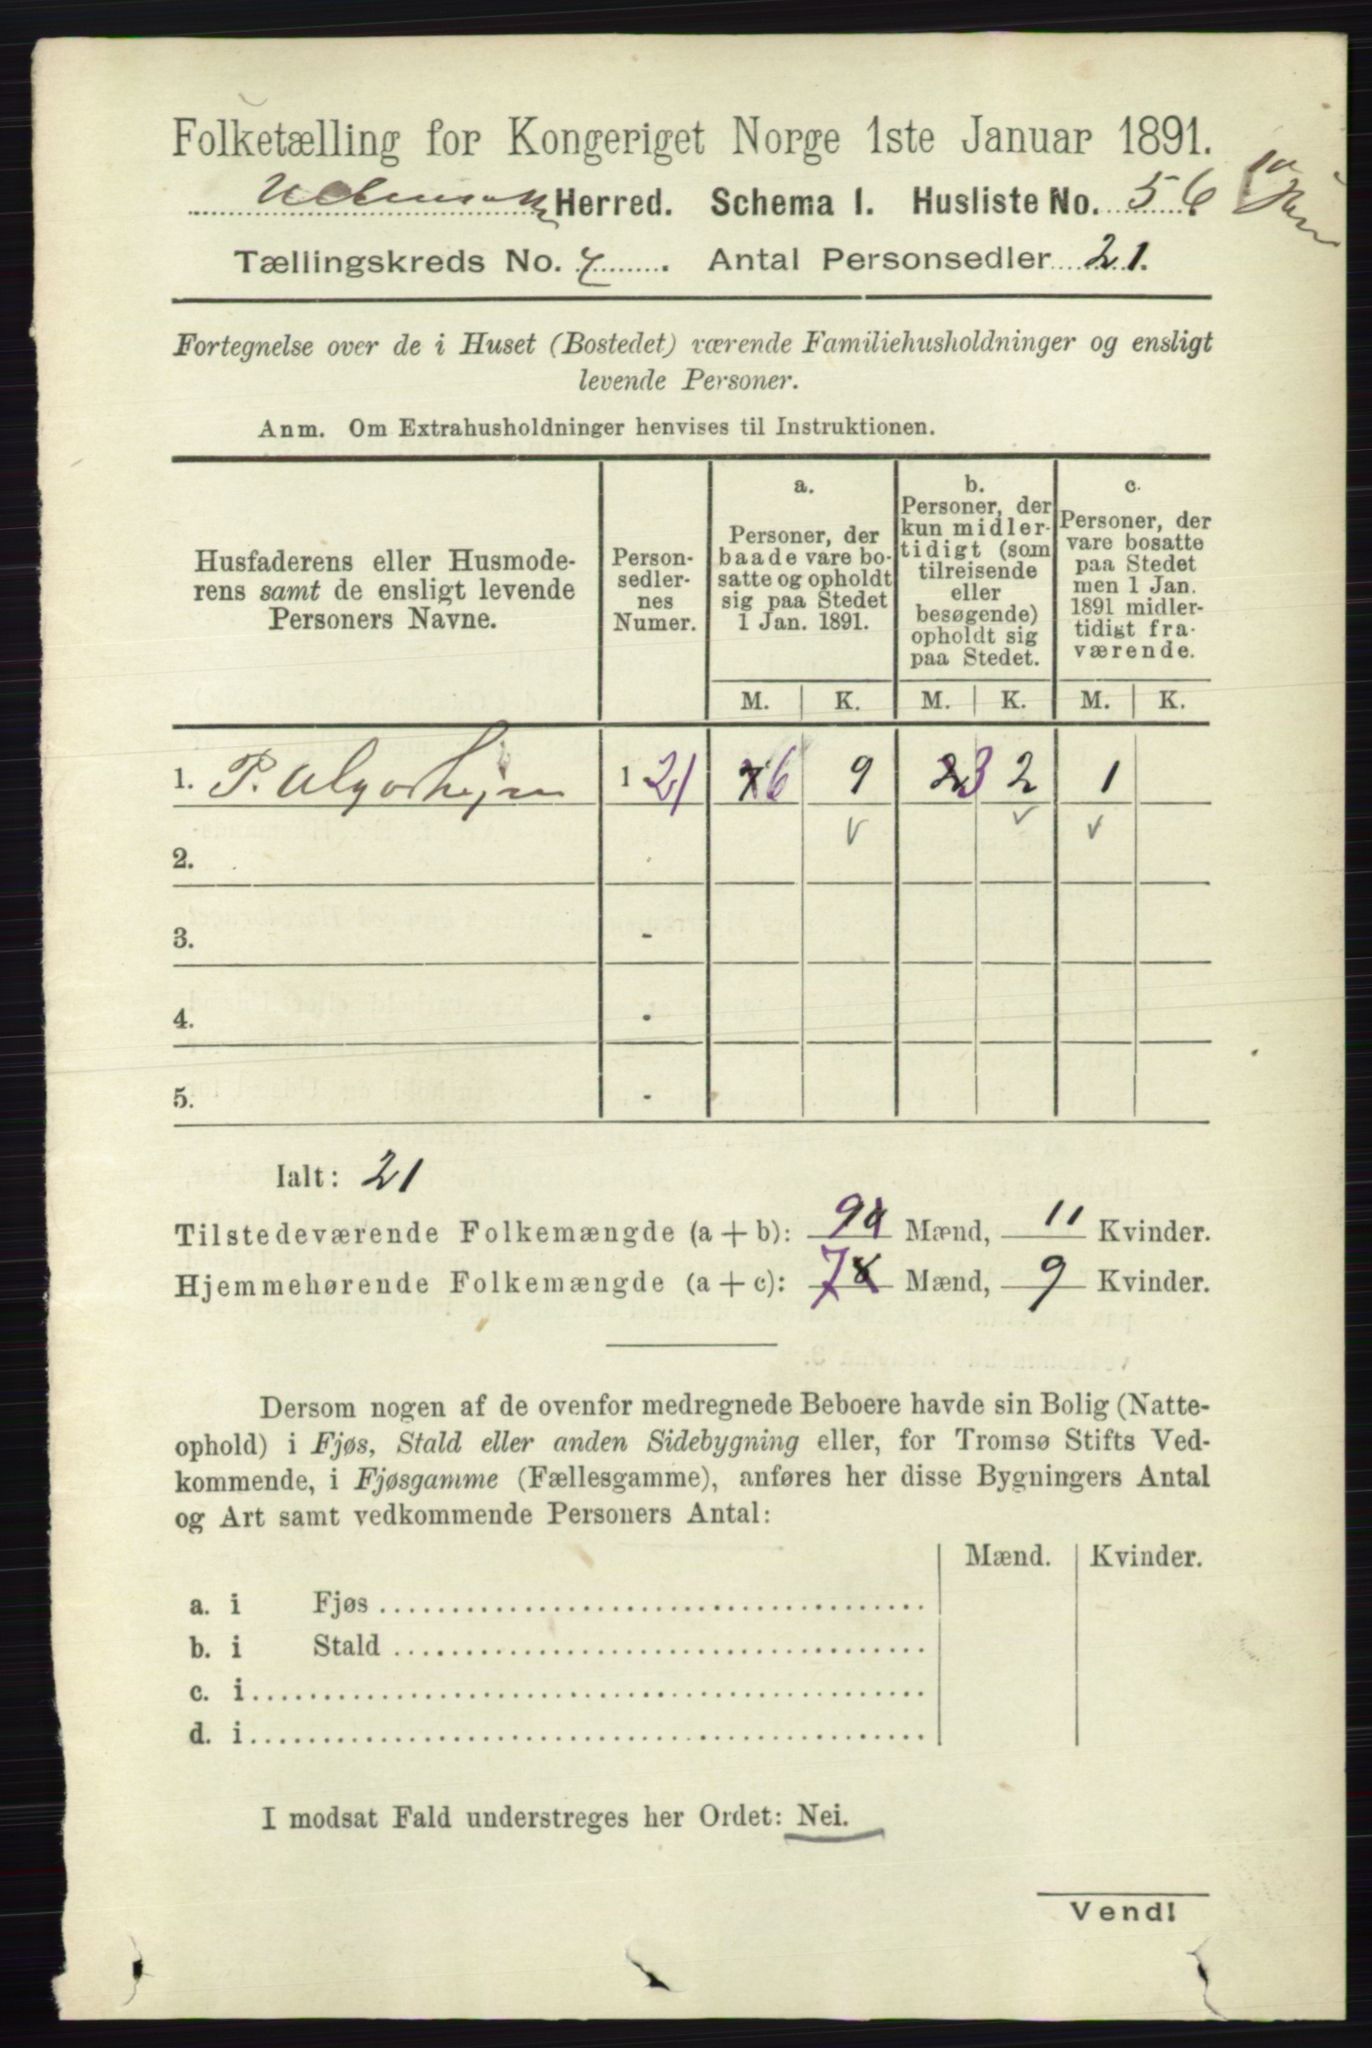 Folketælling for Kongeriget Norge 1ste Januar 1891.
Herred. Schema I. Husliste No. 56
Tællingskreds No. 7. Antal Personsedler 21.
Fortegnelse over de i Huset (Bostedet) værende Familiehusholdninger og ensligt
levende Personer.
Anm. Om Extrahusholdninger henvises til Instruktionen.
Husfaderens eller Husmode-
rens samt de ensligt levende
Personers Navne.
Person-
sedler-
nes
Numer.
a.
Personer, der
baade vare bo-
satte og opholdt
sig paa Stedet
1 Jan. 1891.
b.
Personer, der
kun midler-
tidigt (som
tilreisende
eller
besøgende)
opholdt sig
paa Stedet.
c.
Personer, der
vare bosatte
paa Stedet
men 1 Jan.
1891 midler-
tidigt fra-
værende.
M. K. M. K. M. K.
1. P. 1 21 7 6 9 2 3 2 1
2.
3. -
4. -
5. -
Ialt: 21
Tilstedeværende Folkemængde (a + b): 9 Mænd, 11 Kvinder.
Hjemmehørende Folkemængde (a + c): 7 8 Mænd, 9 Kvinder.
Dersom nogen af de ovenfor medregnede Beboere havde sin Bolig (Natte-
ophold) i Fjøs, Stald eller anden Sidebygning eller, for Tromsø Stifts Ved-
kommende, i Fjøsgamme (Fællesgamme), anføres her disse Bygningers Antal
og Art samt vedkommende Personers Antal:
Mænd. Kvinder.
a. i Fjøs
b. i Stald
c. i
d. i
I modsat Fald understreges her Ordet: Nei.
Vend!